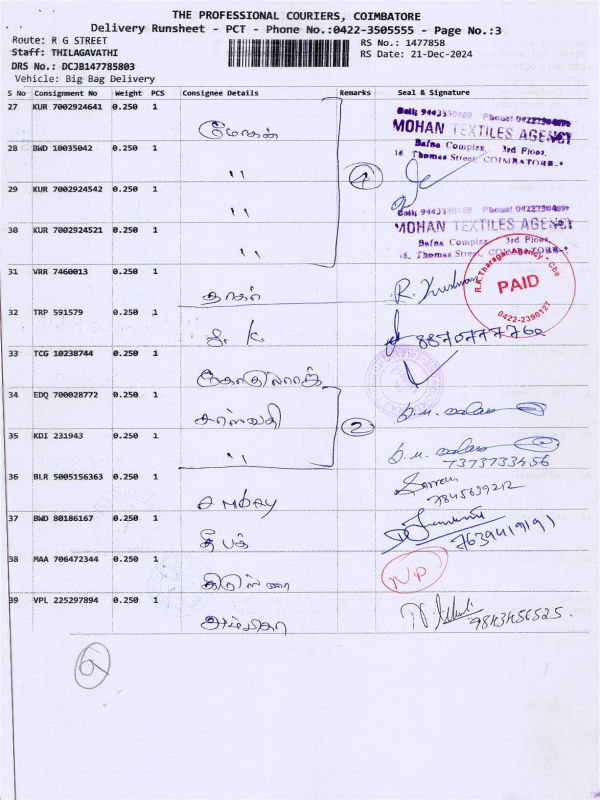 THE PROFESSIONAL COURIERS, COIMBATORE
Delivery Runsheet - PCT - Phone No.:0422-3505555 - Page No.:3
Route: R G STREET
RS No.: 1477858
Staff: THILAGAVATHI
RS Date: 21-Dec-2024
DRS No.: DCJB147785803
Vehicle: Big Bag Delivery
S No Consignment No Weight PCS Consignee Details Remarks Seal & Signature
27 KUR 7002924641 0.250 1
மோகன்
MOHAN TEXTILES AGENCY
Bafna Complex, 3rd Floor,
16 Thomas Street, COIMBATORE-
28 BWD 10035042 0.250 1
"
4
29 KUR 7002924542 0.250 1
"
30 KUR 7002924521 0.250 1
"
MOHAN TEXTILES AGENCY
Bafna Complex 3rd Floor,
16, Thomas Street, COIMBATORE-
31 VRR 7460013 0.250 1
R.K.Tharagu Agency * Cbe
PAID
0422-2390127
32 TRP 591579 0.250 1
S. K.
8870777760
33 TCG 10238744 0.250 1
34 EDQ 700028772 0.250 1
சரஸ்வதி
2
35 KDI 231943 0.250 1
"
7373733456
36 BLR 5005156363 0.250 1
7845699212
37 BWD 80186167 0.250 1
தீபக்
7639419191
38 MAA 706472344 0.250 1
NP
39 VPL 225297894 0.250 1
அம்பிகா
9843456525.